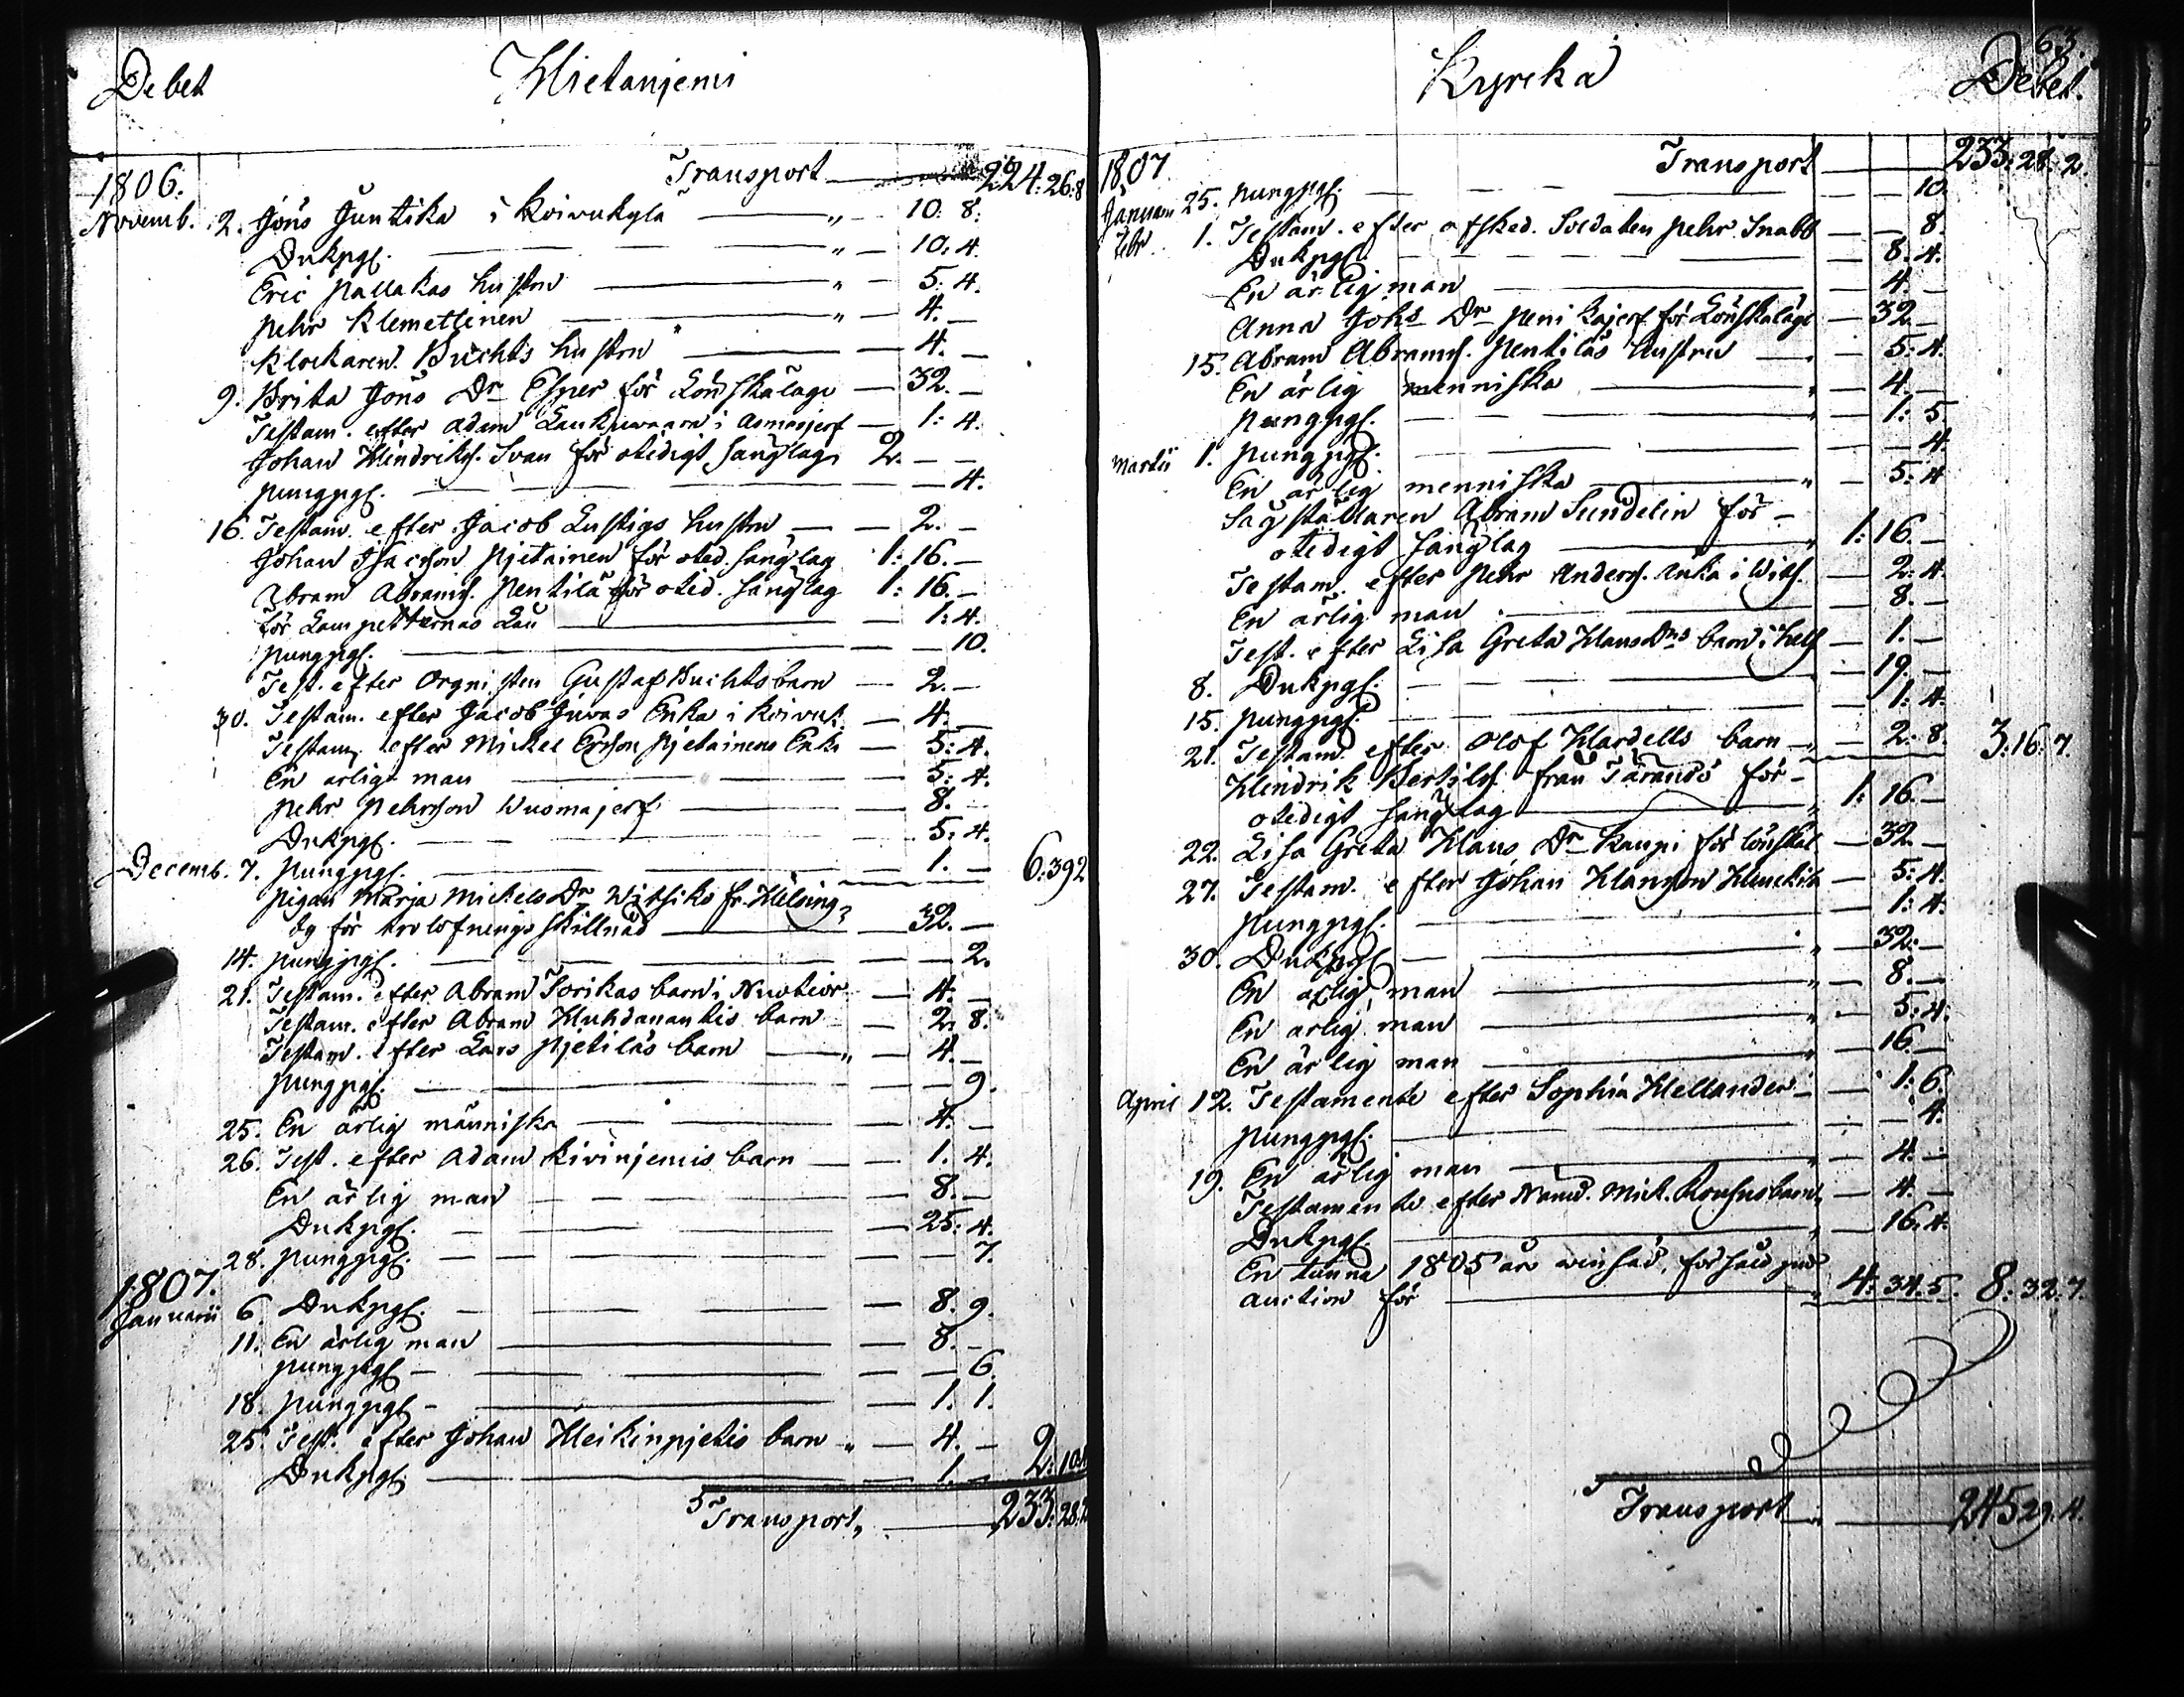 Debet Hietaniemi
Transport 224:26:8
1806.
Novemb. 2. Jöns Juntika i Koivukylä " 10: 8:
Dukpgl. " 10: 4.
Eric Pallakas hustru " 5: 4.
Pehr Klemettinen " 4. —
Klockaren Buchts hustru 4. —
9. Brita Jöns Dr Esper för Lönskaläge 32. —
Testam. efter Adam Laukuwaara i Armasjerf 1: 4.
Johan Hindrichs. Svan för otidigt sänglag 2. — —
pungpgl. — 4.
16. Testam. efter Jacob Lustigs hustru 2. —
Johan Isacson Pjetainen för otid. sänglag 1: 16. —
Abram Abrams. Pentilä för otid. sänglag 1: 16. —
för Lampetternas Lån 1: 4.
pungpgl. — 10.
Test. efter Orgnisten Gustaf Buchts barn 2. —
30. Testam. efter Jacob Juvas Enka i Koivuk. 4. —
Testam. efter Mickel Ersson Pjetainens Enka 5: 4.
En ärlig man 5: 4.
Pehr Pehrsson Wuomajerf 8. —
Dukpgl. 5: 4.
Decemb. 7. Pungpgl. 1. — 6:39 2
Pigan Marja Mickels Dr Witsiko fr. Helsing
by för trolofnings skillnad 32. —
14. pungpgl. — 2.
21. Testam. efter Abram Torikas barn i Nuotior 4. —
Testam. efter Abram Huhdanantis barn 2: 8.
Testam. efter Lars Pjetiläs barn " 4. —
Pungpgl. — 9.
25. En ärlig människa 4. —
26. Test. efter Adam Kiviniemis barn 1. 4.
En ärlig man 8. —
Dukpgl. 25: 4.
28. pungpgl. — 7.
1807.
Januarii 6. Dukpgl. 8. 9.
11. En ärlig man 8. —
pungpgl — 6.
18. Pungpgl 1. 1.
25. Test. efter Johan Heikinpjetis barn " 4. —
Dukpgl. 1. — 2: 10:
Transport, 233:28:2
Kyrcka 63.
Debet.
Transport 233:28:2.
1807.
Januarii 25. pungpgl. — 10
Febr. 1. Testam. efter afsked. Soldaten Pehr Snabb 8.
Dukpgl. 8. 4.
En ärlig man 4. —
Anna Johs Dr Peni Kajerf för Lönskaläge 32. —
15. Abram Abrams. Pentiläs hustru 5: 4.
En ärlig menniska 4. —
pungpgl. 1: 5
Martii 1. pungpgl. — 4.
En ärlig menniska " 5: 4
Sågställaren Abram Sundelin för —
otidigt sänglag " 1: 16. —
Testam. efter Pehr Anders. Anka i Wits. 2: 4.
En ärlig man 8. —
Test. efter Lisa Greta Hans Drs barn i Hels 1. —
8. Dukpgl. 19. —
15. pungpgl. 1: 4.
21. Testam. efter Olof Hardells barn 2: 8. 3:16:7.
Hindrik Bertils. från Tärändö för —
otidigt sänglag " 1: 16. —
22. Lisa Greta Hans Dr Kaupi för lönskal 32. —
27. Testam. efter Johan Hansson 5: 4.
Pungpgl. 1: 4.
30. Dukpgl " 32. —
En ärlig man " 8. —
En ärlig man " 5: 4.
En ärlig man " 16. —
April 12. Testamente efter Sophia Hellander 1: 6.
pungpgl. — 4.
19. En ärlig man " 4. —
Testamente efter Nämd. Mick. barn 4. —
Dukpgl. " 16. 4.
En tunna 1805 års försåld på
auction för " 4: 34. 5. 8: 32. 7
Transport " 245 29. 4.